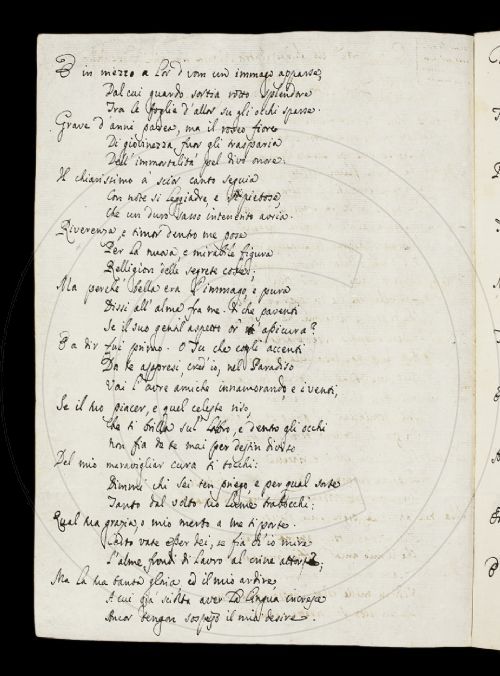 E in mezzo a lor d'uom un' immago apparse,
Dal cui guardo sortia rotto splendore
Tra le foglie d'allor su gli occhi sparse.
Grave d'anni parea, ma il roseo fiore
Di giovinezza fuor gli trasparia
Dell'immortalità pel divo onore.
Il chiarissimo a scior canto seguia
Con note sì leggiadre, e sì pietose,
Che un duro sasso intenerito avria.
Riverenza, e timor dentro me pose
Per la nuova, e mirabile figura
Relligion delle segrete cose;
Ma perchè bella era l'immago, e pura
Dissi all'alma fra me. Di che paventi
Se il suo gentil aspetto or t'assicura?
E a dir fui primo. O Tu che cogli accenti
Da te appresi cred'io, nel Paradiso
Vai l'aure amiche innamorando, e i venti,
Se il tuo piacer, e quel celeste riso,
Che ti brilla sul labro, e dentro gli occhi
Non fia da te mai per destin diviso
Del mio meravigliar cura ti tocchi:
Dimmi chi sei ten priego, e per qual sorte
Tanto dal volto tuo lume trabocchi:
Qual tua grazia, o mio merto a me ti porte.
vate se fia ch'io mire
L'alme frondi di Lauro al crine attorte;
Ma la tua tanta gloria ed il mio ardire
A cui già la lingua increse
Ancor tengon sospeso il mio desire.